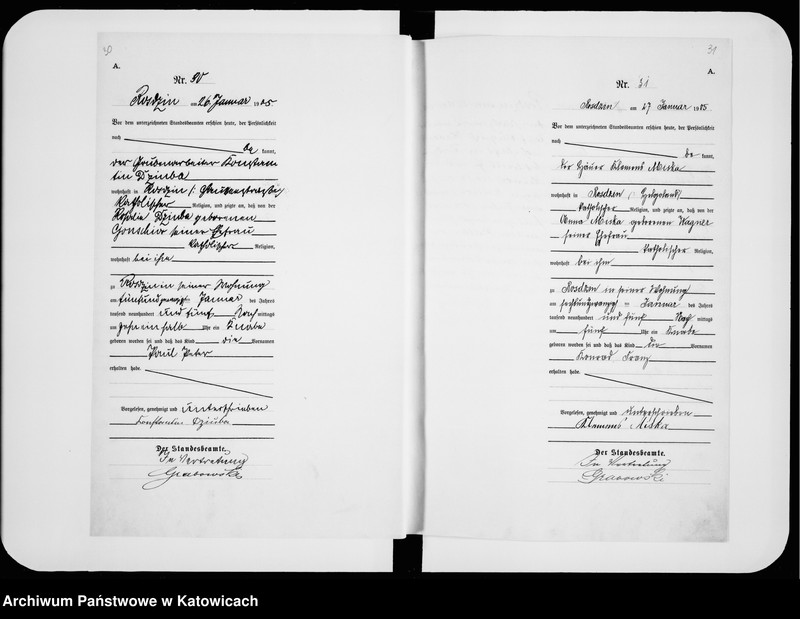 30
A.
Nr. 30
Rosdzin am 26 Januar 1905
Vor dem unterzeichneten Standesbeamten erschien heute, der Persönlichkeit
nach
be kannt,
der Grubenarbeiter Konstan
tin Dziuba
wohnhaft in Rosdzin
katholischer Religion, und zeigte an, daß von der
Rosalie Dziuba geborenen
seiner Ehefrau
katholischer Religion,
wohnhaft bei ihm
zu Rosdzin in seiner Wohnung
am fünfundzwanzigsten Januar des Jahres
tausend neunhundert und fünf Nach mittags
um zehneinhalb Uhr ein Knabe
geboren worden sei und daß das Kind die Vornamen
Paul Peter
erhalten habe.
Vorgelesen, genehmigt und unterschrieben
Konstantin Dziuba
Der Standesbeamte.
In Vertretung
Grabowski
31
A.
Nr. 31
Rosdzin am 27 Januar 1905
Vor dem unterzeichneten Standesbeamten erschien heute, der Persönlichkeit
nach
be kannt,
der Häuer Klemens Miska
wohnhaft in Rosdzin
katholischer Religion, und zeigte an, daß von der
Anna Miska geborenen Wagner
seiner Ehefrau
katholischer Religion,
wohnhaft bei ihm
zu Rosdzin in seiner Wohnung
am Januar des Jahres
tausend neunhundert und fünf Nach mittags
um fünf Uhr ein Knabe
geboren worden sei und daß das Kind die Vornamen
Konrad Franz
erhalten habe.
Vorgelesen, genehmigt und unterschrieben
Klemens Miska
Der Standesbeamte.
In Vertretung
Grabowski
Archiwum Państwowe w Katowicach